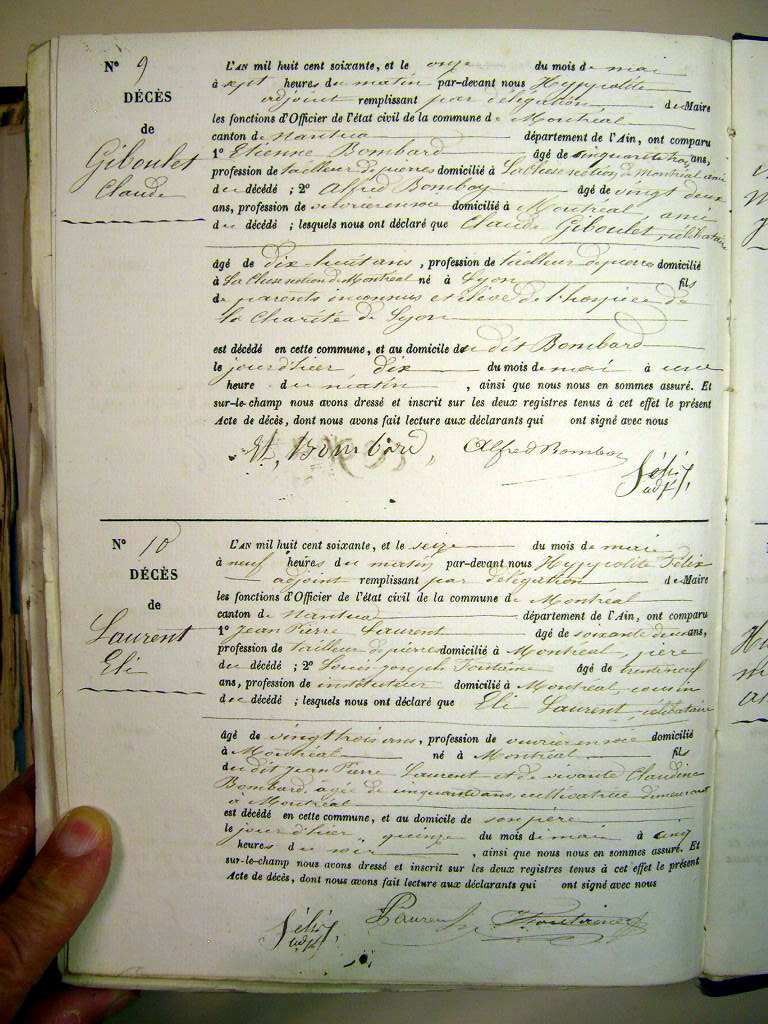 N° 9
DÉCÈS
de
Giboulet
Claude
L'AN mil huit cent soixante, et le onze du mois de mai
à sept heures du matin par-devant nous Hyppolite
adjoint remplissant par délégation de Maire
les fonctions d'Officier de l'état civil de la commune de Montréal
canton de Nantua département de l'Ain, ont comparu
1° Etienne Bombard âgé de cinquante trois ans,
profession de tailleur de pierres domicilié à La Cluse section de Montréal ami
du décédé ; 2° Alfred Bomboy âgé de vingt deux
ans, profession de domicilié à Montréal, ami
du décédé ; lesquels nous ont déclaré que Claude Giboulet, célibataire
âgé de dix-huit ans, profession de tailleur de pierres domicilié
à La Cluse section de Montréal né à Lyon fils
de parents inconnus et élève de l'hospice de
la Charité de Lyon
est décédé en cette commune, et au domicile du dit Bombard
le jour d'hier dix du mois de mai à une
heure du matin, ainsi que nous nous en sommes assuré. Et
sur-le-champ nous avons dressé et inscrit sur les deux registres tenus à cet effet le présent
Acte de décès, dont nous avons fait lecture aux déclarants qui ont signé avec nous
Et, Bombard, Alfred Bomboy
Félix
adj
N° 10
DÉCÈS
de
Laurent
Eli
L'AN mil huit cent soixante, et le seize du mois de mai
à neuf heures du matin par-devant nous Hyppolite Félix
adjoint remplissant par délégation de Maire
les fonctions d'Officier de l'état civil de la commune de Montréal
canton de Nantua département de l'Ain, ont comparu
1° Jean Pierre Laurent âgé de soixante deux ans,
profession de tailleur de pierres domicilié à Montréal, père
du décédé ; 2° Louis Joseph Fontaine âgé de trente neuf
ans, profession de instituteur domicilié à Montréal, cousin
du décédé ; lesquels nous ont déclaré que Eli Laurent, célibataire
âgé de vingt trois ans, profession de ouvrier en soie domicilié
à Montréal né à Montréal fils
du dit Jean Pierre Laurent et de vivante Claudine
Bombard, agée de cinquante ans, cultivatrice demeurant
à Montréal
est décédé en cette commune, et au domicile de son père
le jour d'hier quinze du mois de mai à cinq
heures du soir, ainsi que nous nous en sommes assuré. Et
sur-le-champ nous avons dressé et inscrit sur les deux registres tenus à cet effet le présent
Acte de décès, dont nous avons fait lecture aux déclarants qui ont signé avec nous
Félix Laurent Fontaine
adj